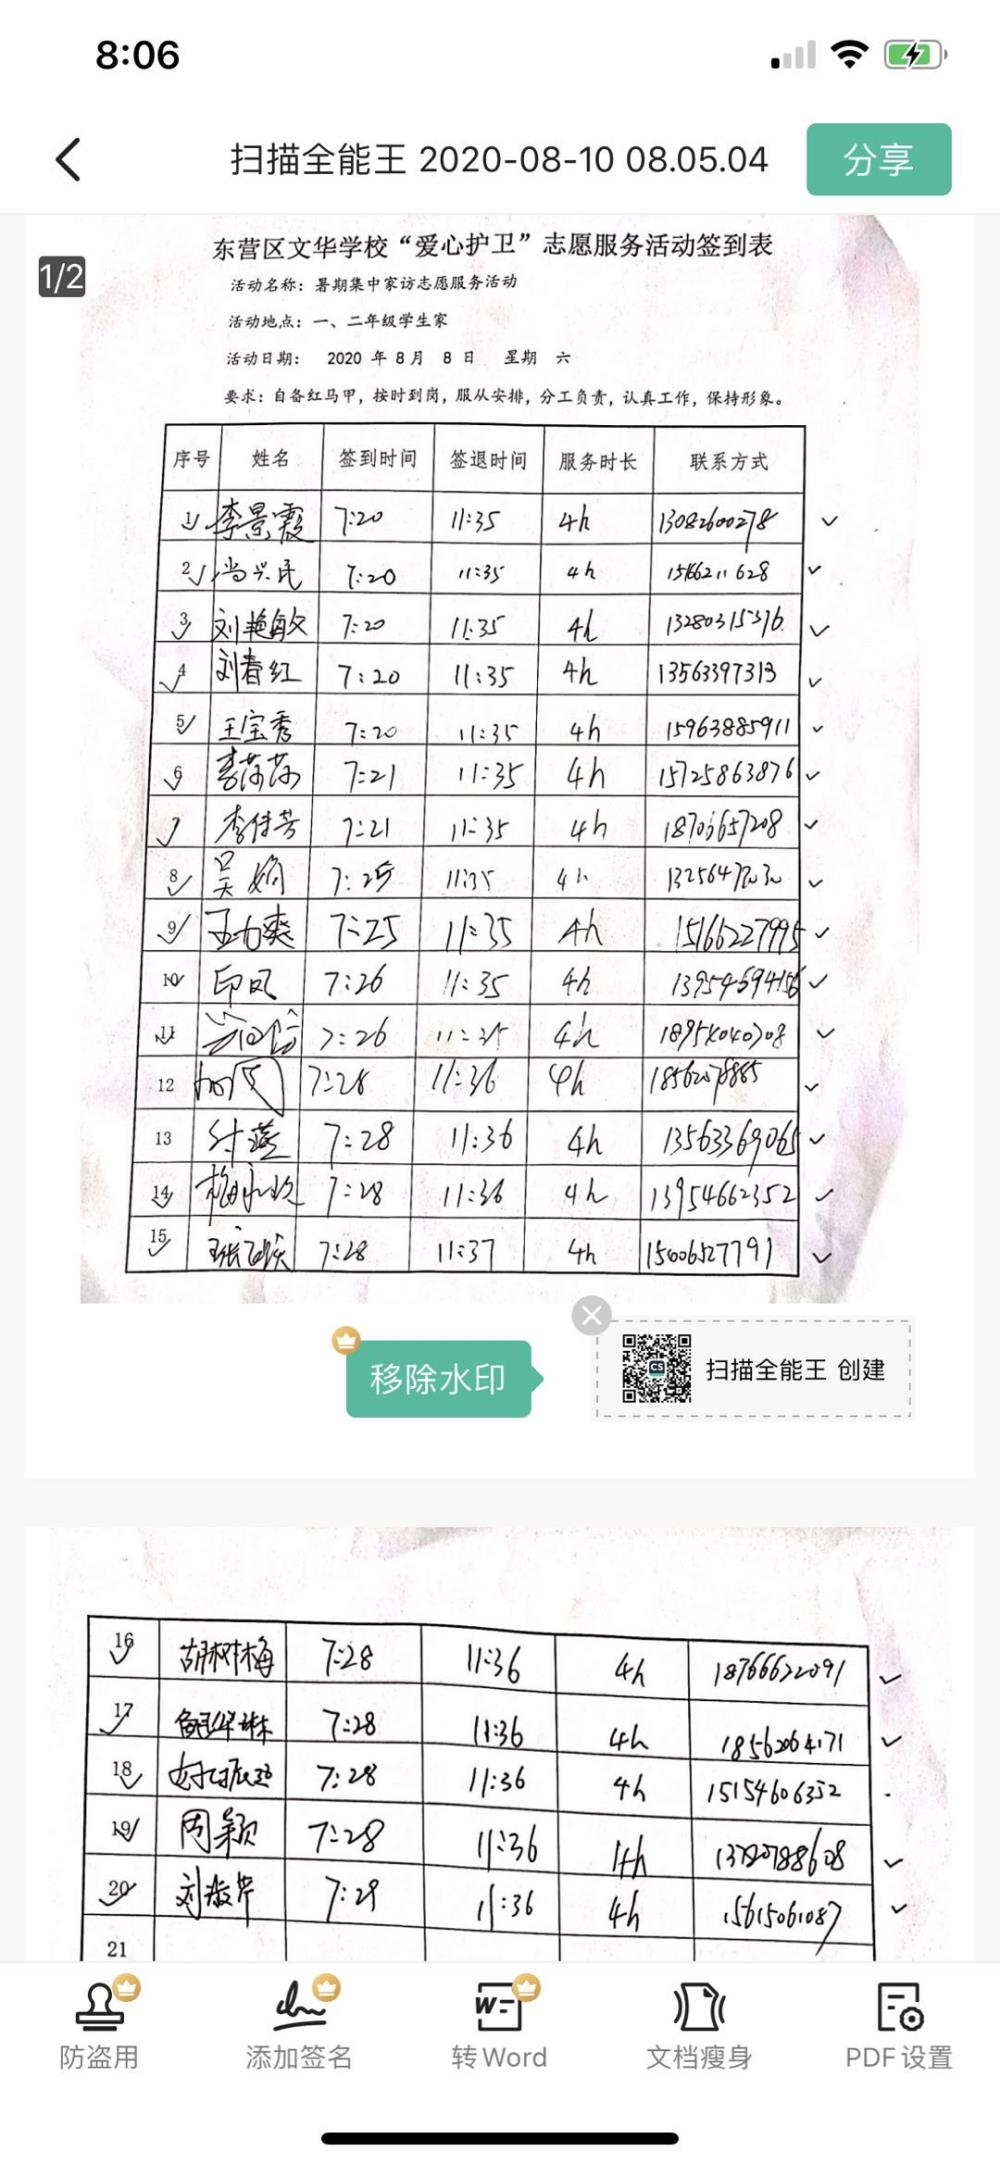 8:06
扫描全能王 2020-08-10 08.05.04
分享
1/2
东营区文华学校“爱心护卫”志愿服务活动签到表
活动名称：暑期集中家访志愿服务活动
活动地点：一、二年级学生家
活动日期： 2020 年 8 月 8 日 星期 六
要求：自备红马甲，按时到岗，服从安排，分工负责，认真工作，保持形象。
序号 姓名 签到时间 签退时间 服务时长 联系方式
1 李景霞 7:20 11:35 4h 13082600278
2 尚兴民 7:20 11:35 4h 15166211628
3 刘艳敏 7:20 11:35 4h 13280315376
4 刘春红 7:20 11:35 4h 13563397313
5 王宝秀 7:20 11:35 4h 15963885911
6 李莎莎 7:21 11:35 4h 15725863876
7 李佳芳 7:21 11:35 4h 18706657208
8 吴娟 7:25 11:35 4h
9 7:25 11:35 4h 15166227995
10 印凤 7:26 11:35 4h 13954694156
11 7:26 11:35 4h
12 7:28 11:36 4h
13 付莲 7:28 11:36 4h 13563369065
14 7:28 11:36 4h 13954662352
15 7:28 11:37 4h 15006527791
移除水印
CS
扫描全能王 创建
16 胡树梅 7:28 11:36 4h 18766622091
17 7:28 11:36 4h 18562064171
18 7:28 11:36 4h 15154606352
19 周颖 7:28 11:36 4h
20 刘 芹 7:29 11:36 4h 15615061087
21
防盗用 添加签名 转Word 文档瘦身 PDF设置